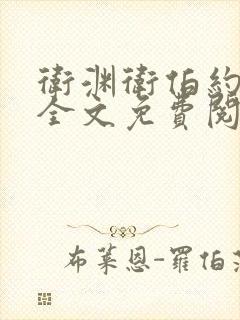 衛渊衛伯約
全文免費閱
布萊恩-羅伯